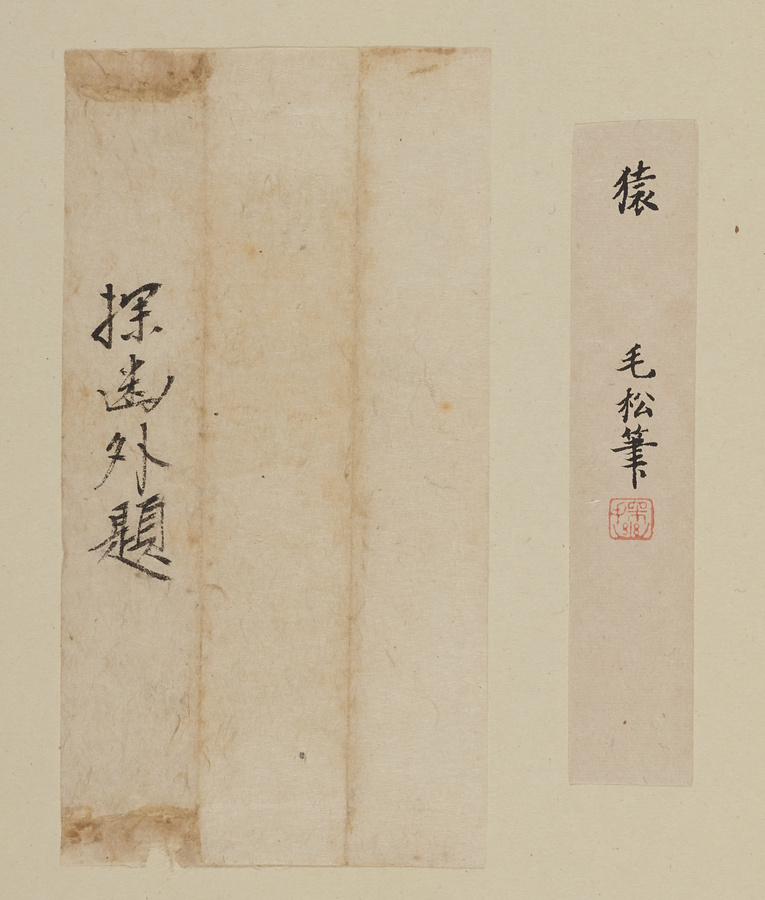 猿　毛松筆
探幽外題